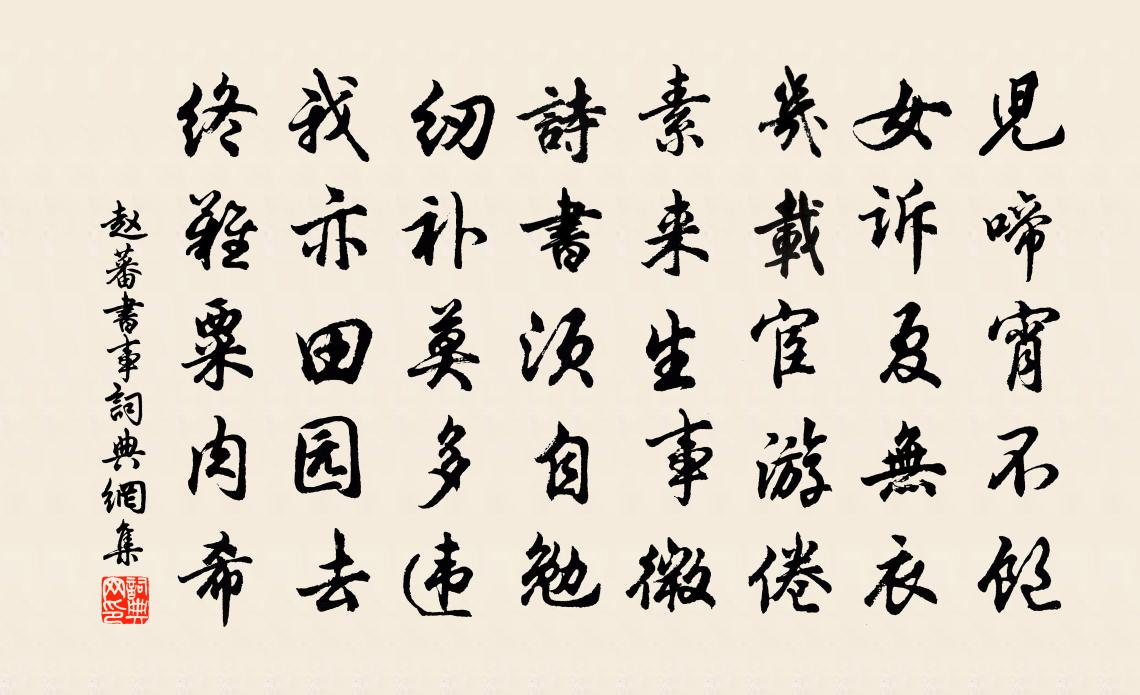 児啼宵不飽
女诉夏無衣
幾載宦游倦
素来生事微
詩書须自勉
纫补莫多违
我亦田园去
终難粟肉希
赵蕃書事詞典網集
詞典网印